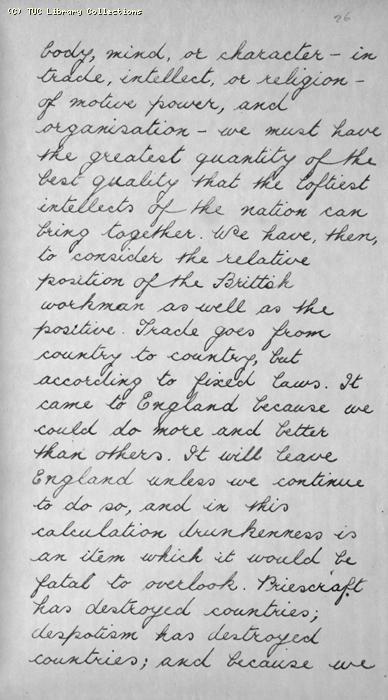 (C) TUC Library Collections
26
body, mind, or character - in
trade, intellect, or religion -
of motive power, and
organisation - we must have
the greatest quantity of the
best quality that the loftiest
intellects of the nation can
bring together. We have, then,
to consider the relative
position of the Brittish
workman as well as the
positive. Trade goes from
country to country, but
according to fixed laws. It
came to England because we
could do more and better
than others. It will leave
England unless we continue
to do so, and in this
calculation drunkenness is
an item which it would be
fatal to overlook. Priescraft
has destroyed countries;
despotism has destroyed
countries; and because we